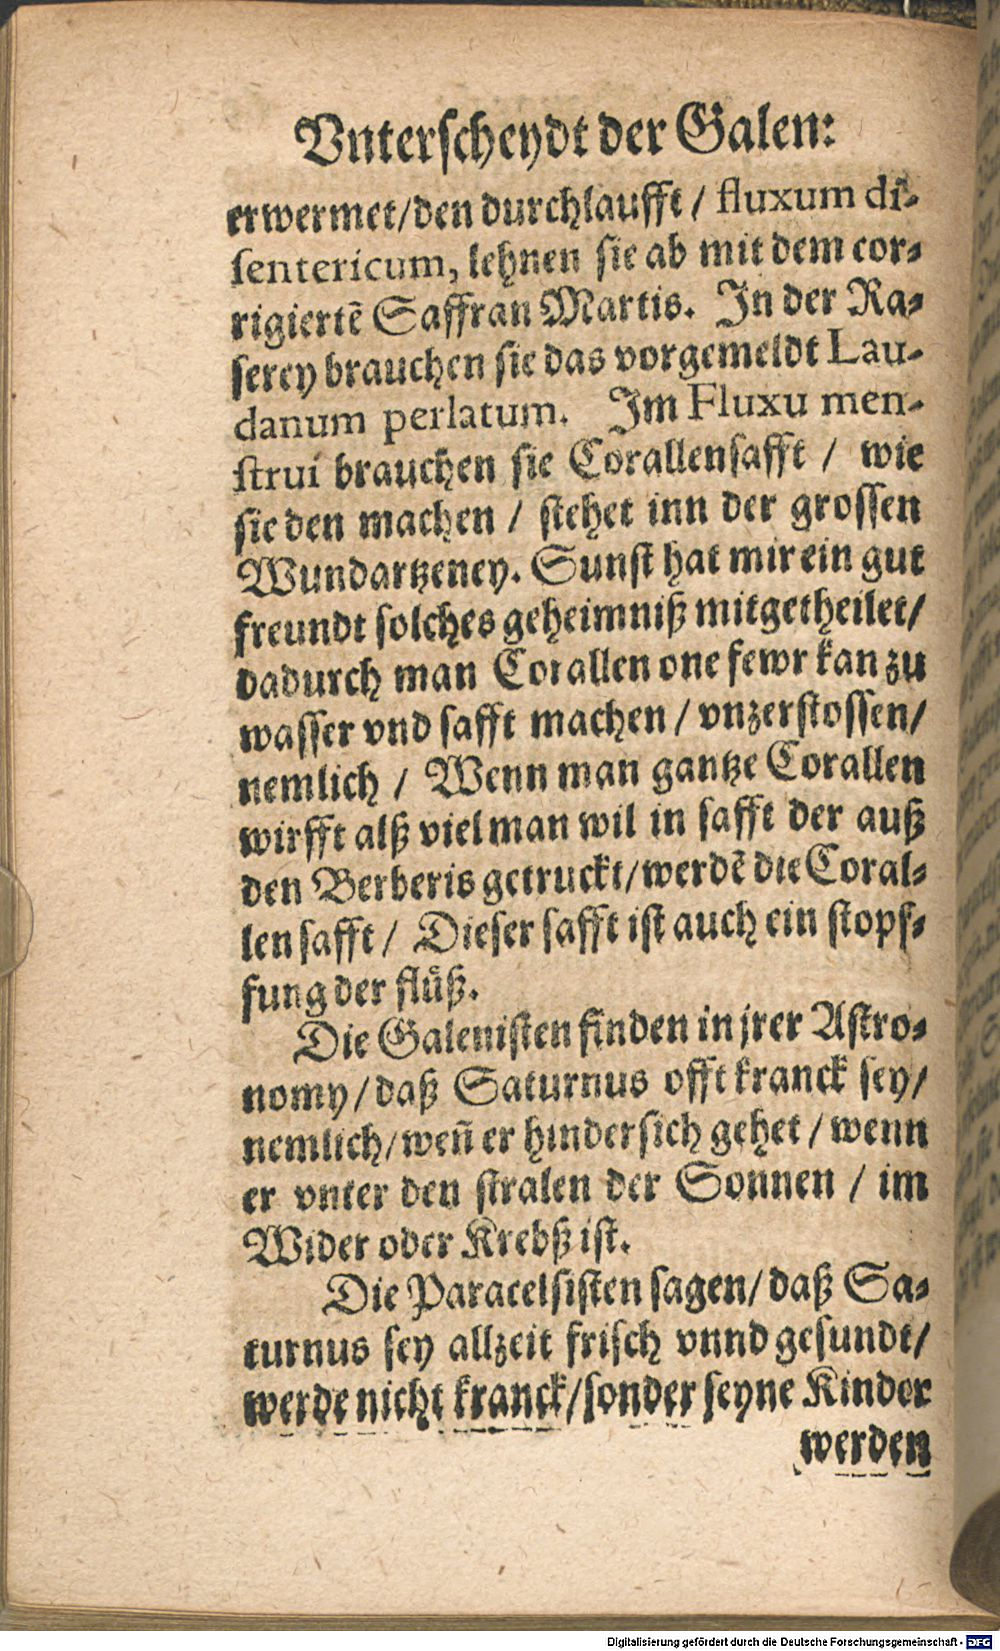 Vnterscheydt der Galen:
erwermet/den durchlaufft / fluxum di-
sentericum, lehnen sie ab mit dem cor-
rigiertẽ Saffran Martis. In der Ra-
serey brauchen sie das vorgemeldt Lau-
danum perlatum. Im Fluxu men-
strui brauchen sie Corallensafft / wie
sie den machen / stehet inn der grossen
Wundartzeney. Sunst hat mir ein gut
freundt solches geheimniß mitgetheilet/
dadurch man Corallen one fewr kan zu
wasser vnd safft machen / vnzerstossen/
nemlich / Wenn man gantze Corallen
wirfft alß viel man wil in safft der auß
den Berberis getruckt/werdẽ die Coral-
len safft / Dieser safft ist auch ein stopf-
fung der flüß.
Die Galenisten finden in jrer Astro-
nomy/daß Saturnus offt kranck sey/
nemlich/weñ er hindersich gehet / wenn
er vnter den stralen der Sonnen / im
Wider oder Krebß ist.
Die Paracelsisten sagen/daß Sa-
turnus sey allzeit frisch vnnd gesundt/
werde nicht kranck/sonder seyne Kinder
werden
Digitalisierung gefördert durch die Deutsche Forschungsgemeinschaft - DFG